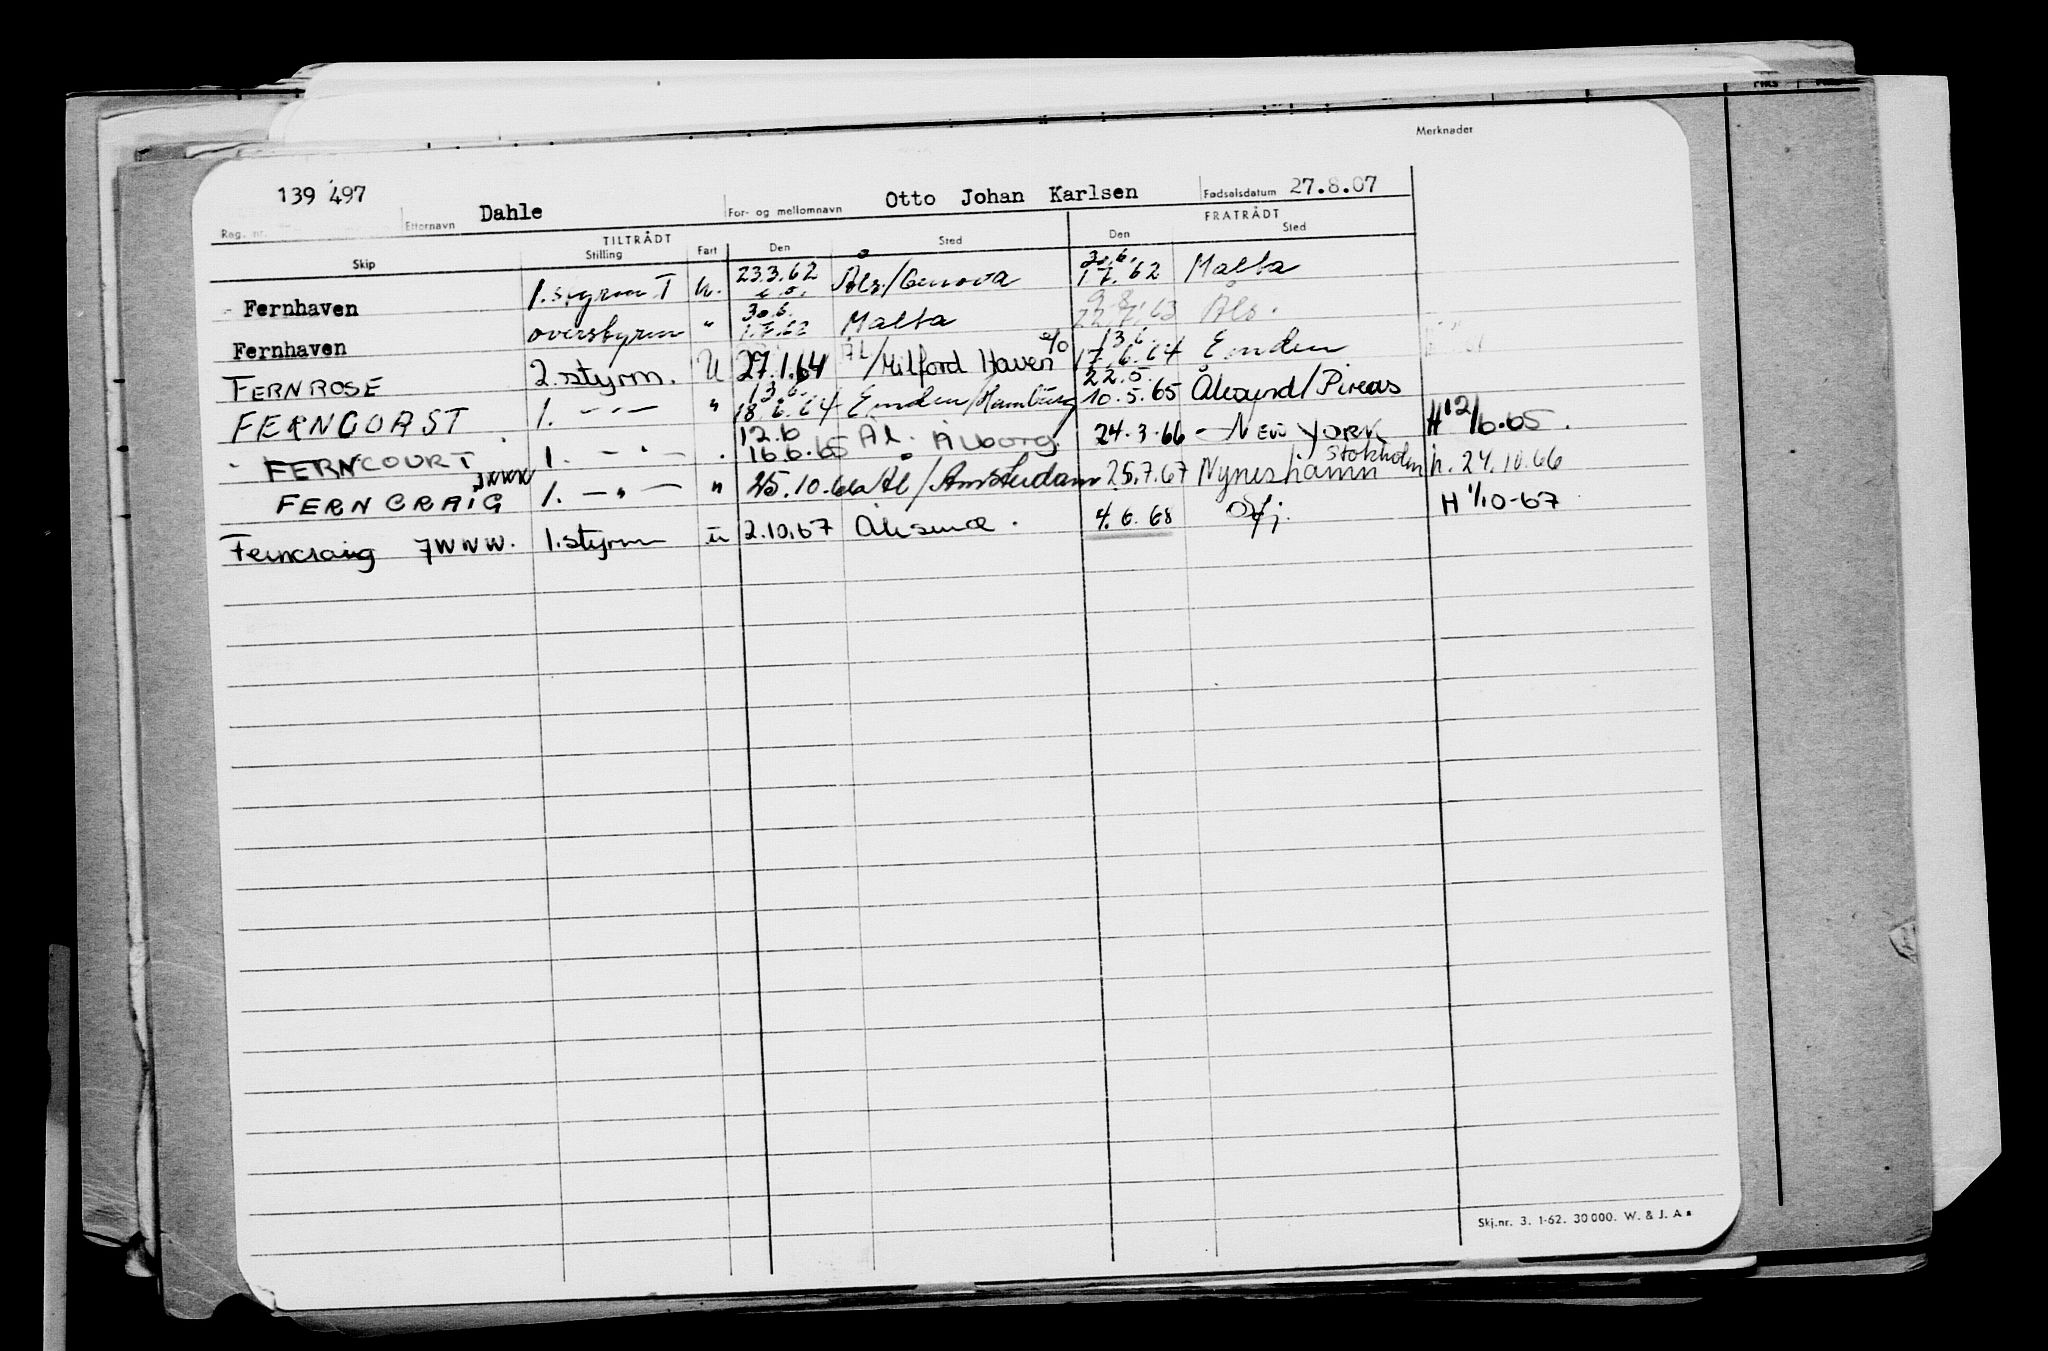 Merknader
139 497 Dahle Otto Johan Karlsen 27.8.07
Reg. nr. Etternavn For- og mellomnavn Fødselsdatum
TILTRÅDT FRATRÅDT
Skip Stilling Fart Den Sted Den Sted
Fernhaven 1. styrm I U. 23.3.62 Åls/Genova 30.6. 62 Malta
Fernhaven overstyrm " 30.6. 62 Malta 63 Åls.
FERNROSE 2. styrm. U 27.1.64 ÅL/Milford Haven 13.6. 17.6.64 Emden
FERNCOAST 1. -"- " 13.6. 18.6.64 Emden/Hamburg 22.5. 10.5.65 Ålesund/Pireas
FERNCOURT 1. -"- 12.6 16.6.65 Ål. Ålborg. 24.3.66 - NEW YORK H 12/6-65.
FERNCRAIG JWWW 1. -"- " 25.10.66 Ål/Amsterdam 25.7.67 Nyneshamn Stokholm h. 24.10.66
Ferncraig JWWW. 1. styrm u 2.10.67 Ålesund. 4.6.68 H 1/10-67
Skj.nr. 3. 1-62. 30 000. W. & J. A s